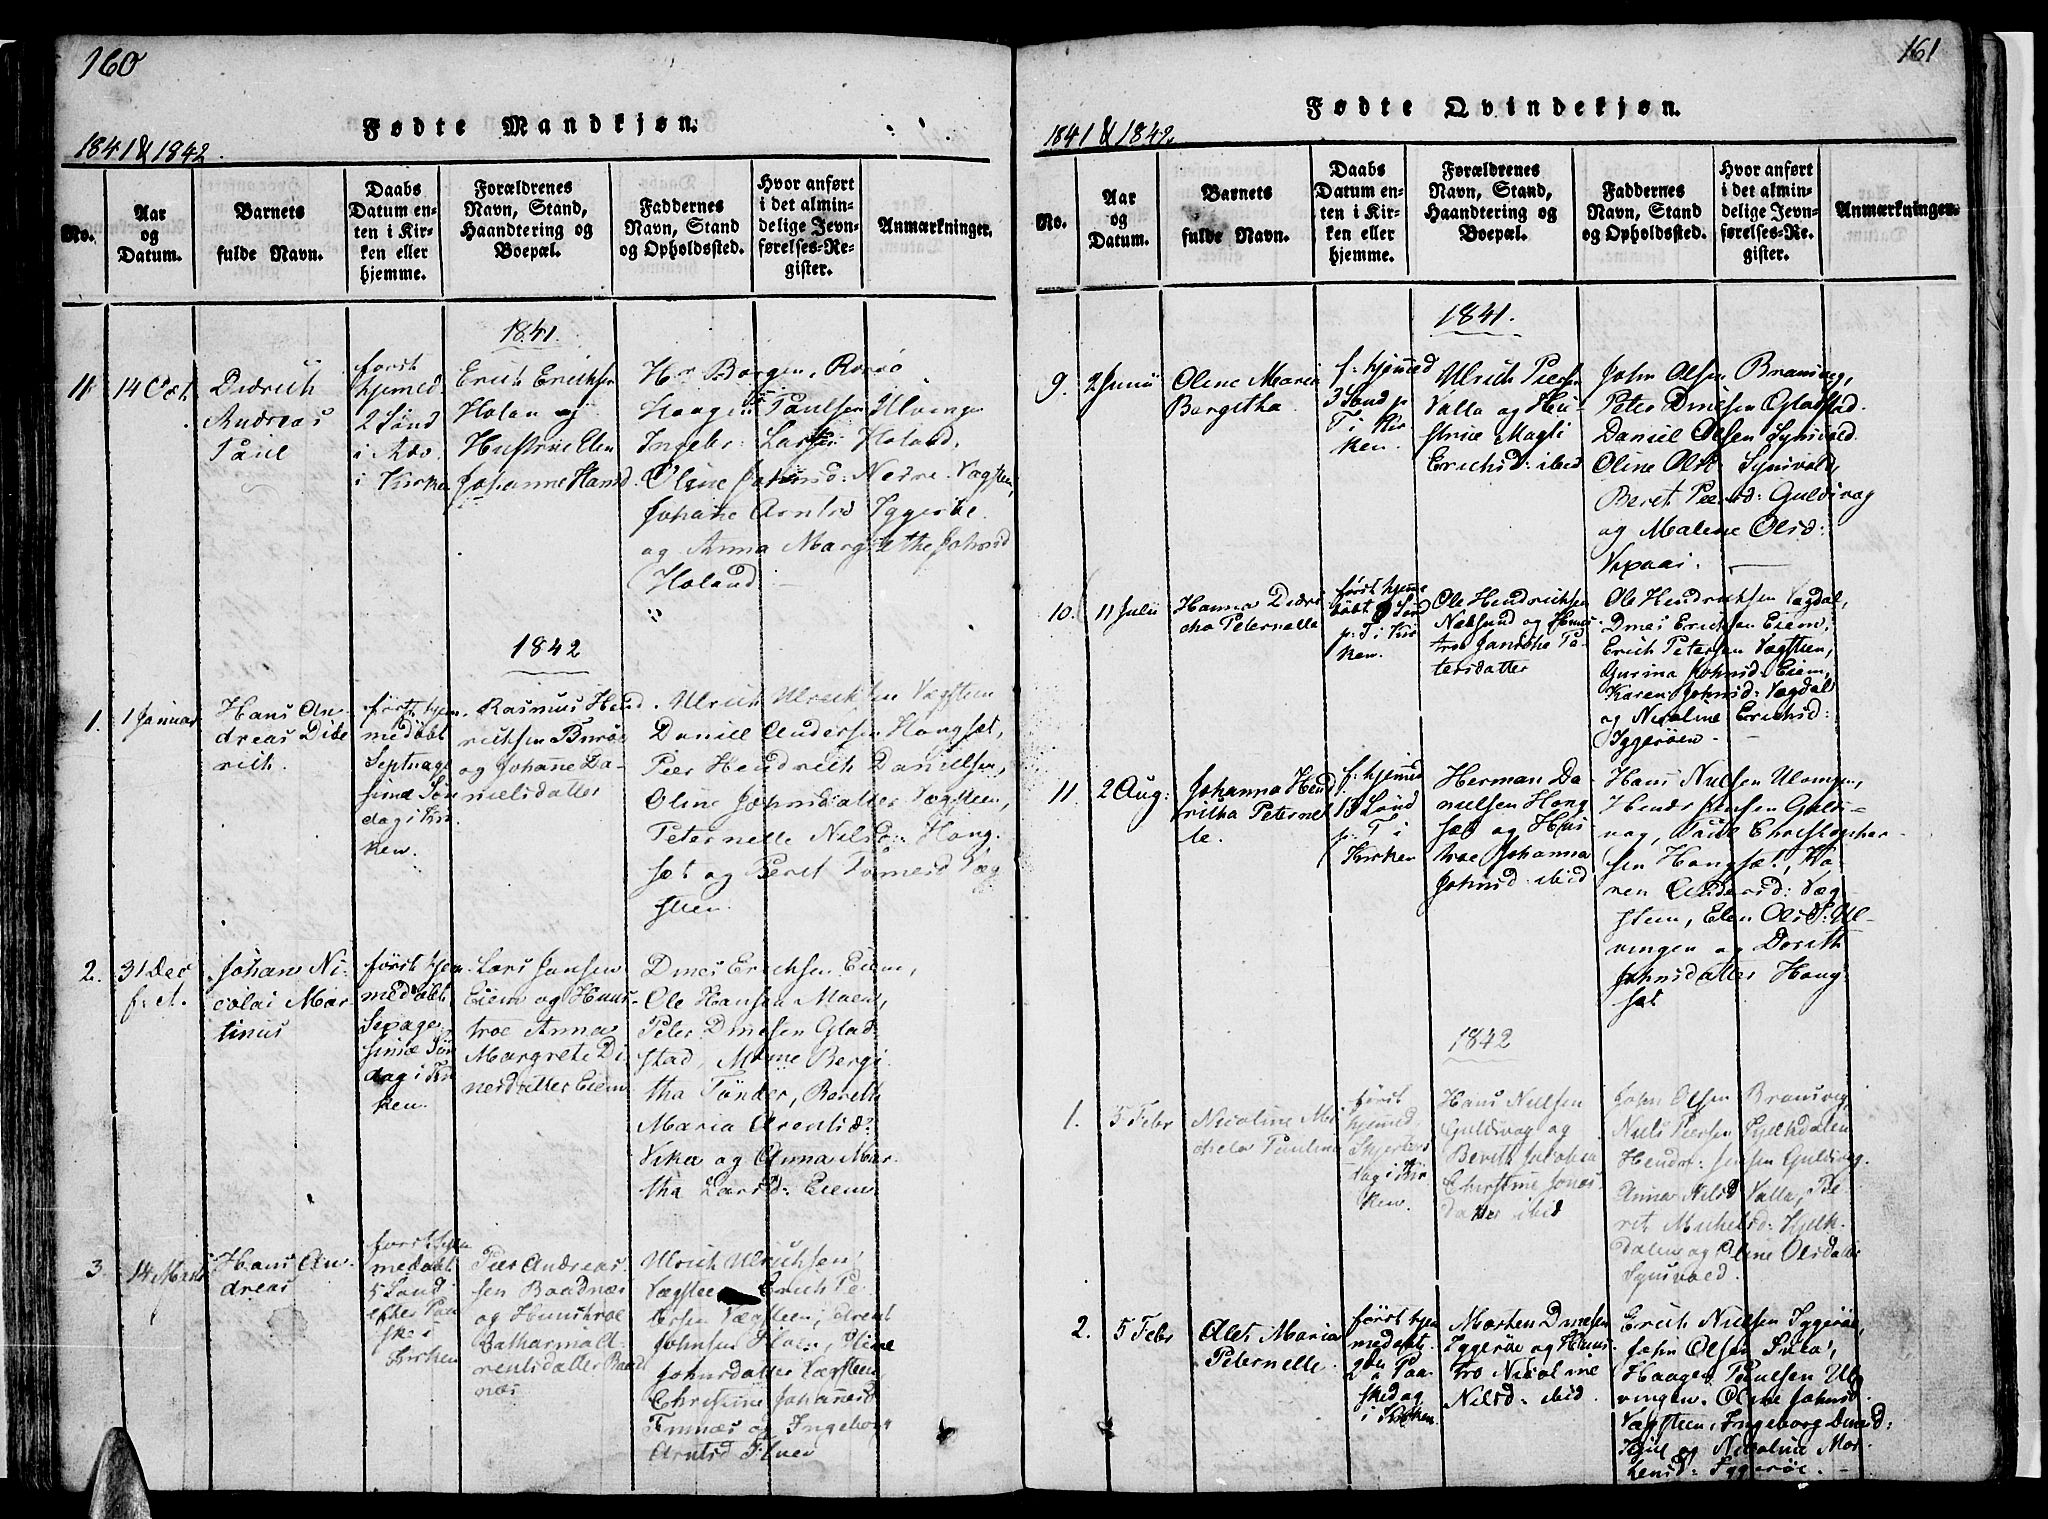 160
Fødte Mandkjøn.
1841 & 1842.
No.
Aar
og
Datum.
Barnets
fulde Navn.
Daabs
Datum en-
ten i Kir-
ken eller
hjemme.
Forældrenes
Navn, Stand,
Haandtering og
Boepæl.
Faddernes
Navn, Stand
og Opholdssted.
Hvor anført
i det almin-
delige Jevn-
førelses-Re-
gister.
Anmærkninger.
1841
11
14 Oct
Didrich
Andreas
Paul
først
hjemed
2 Sønd
i Adv.
i Kirken
Erich Erichsen
Holan og
Hustrue Elen
Johanne Hansd
Hr Borgen, Rorøe
Haagen Paulsen Ulvingen
Ingebr: Larsen Holand,
Oline Johnsd: Nedre Vægsteen,
Johane Arntsd Iggerøe
og Anna Margrethe Johnsd
Holand.
1842
1.
1 Januar
Hans An-
dreas Dide
rich.
først hjem
medøbt
Septuage
sima Søn
dag i Kir
ken.
Rasmus Hend
richsen Burøe
og Johanne Da-
nielsdatter
Ulrich Ulrichsen Vægsteen
Daniel Andersen Hongsæt,
Peer Hendrich Danielsen,
Oline Johnsdatter Vægsteen,
Peternelle Nilsd: Hong-
sæt og Beret Tomesd Væg
steen.
2.
31 Dec
f: A.
Johan Ni-
colai Mar
tinus
først hjem
medøbt
Sexage
sima Søn
dag i Kir
ken.
Lars Jansen
Eiem og Huus-
troe Anna
Margrete Di
nesdatter Eiem
Dines Erichsen Eiem,
Ole Hansen Moen,
Peter Dinesen Glad-
stad, Maine Bergi
tha Tønder, Bereth
Maria Arentsd:
Viken og Anna Mar-
tha Larsd: Eiem.
3.
14 Marts
Hans An
dreas
først hjem
medøbt
5 Sønd
efter Paa
ske i
Kirken
Peer Andreas
sen Baadnæs
og Huustroe
Catharina A
rentsdatter Baad
næs
Ulrich Ulrichsen
Vægsteen, Erich Pe
tersen Vægsteen, Arent
Johnsen Floen, Oline
Johnsdatter Vægsteen,
Christine Johannesd
Finnæs og Ingeborg
Arntsd Floen
161
Fødte Qvindekjøn.
1841 & 1842.
No.
Aar
og
Datum.
Barnets
fulde Navn.
Daabs
Datum en-
ten i Kir-
ken eller
hjemme.
Forældrenes
Navn, Stand,
Haandtering og
Boepæl.
Faddernes
Navn, Stand
og Opholdssted.
Hvor anført
i det almin-
delige Jevn-
førelses-Re-
gister.
Anmærkninger.
1841.
9.
2 Junii
Oline Maria
Bergitha
f: hjemed
3 Sønd p
T i Kir
ken.
Ulrich Peersen
Valla og Hu-
strue Magli
Erichsd: ibid
John Olsen Bransvig,
Peter Dinesen Gladstad.
Daniel Olsen Synsvold.
Oline Olsd Synsvold,
Beret Peersd: Guldivag
og Malene Olsd:
Vixaas.
10.
11 Julii
Hanna Didri
cha Peternella
først hjeme
døbt 8 Sønd
p: T i Kir
ken.
Ole Hendrichsen
Nilsund og Huus
troe Janiche Pe-
tersdatter
Ole Hendrichsen Vægdal,
Dines Erichsen Eiem,
Erich Petersen Vægsteen,
Gurina Johnsd: Eiem,
Karen Johnsd: Vægdal
og Nicoline Erichsd:
Iggerøen.
11
2 Aug:
Johanna Hend
richa Peternel
le.
f: hjemed
13 Sønd
p: T i
Kirken
Herman Da
nielsen Hong
sæt og Huus
troe Johanna
Johnsd: ibid
Hans Nielsen Ulvingen,
Hendr Jensen Guldi-
vag, Paul Christopher-
sen Hongsæt, Ka-
ren Andersd: Væg-
steen, Elen Olsd: Ul-
vingen og Dorith
Johnsdatter Hong-
sæt
1842
1.
5 Febr
Nicoline Mi
chela Paulina
først
hjemed,
Skjertors
dag i Kir
ken.
Hans Nielsen
Guldivag og
Bereth Jacobea
Christine Jonas
datter ibid
John Olsen Bransvig,
Niels Peersen Hjelkdalen
Hendr: Jensen Guldivag.
Anna Nilsd Valla, Be-
ret Michelsd: Hjelk-
dalen og Oline Olsdatter
Synsvold.
2.
5 Febr
Alet Maria
Peternelle.
først hjem
medøbt,
2den Paa
skedag
i Kirken.
Morten Dinesen
Iggerøe og Huus
tro Nicoline
Nilsd: ibid.
Erich Nielsen Iggerøe,
John Olsen
Haagen Paulsen Ul-
vingen. Oline Johnsd
Vægsteen, Ingeborg Dinesd:
og Nicoline Mor-
tensd: Iggerøe.